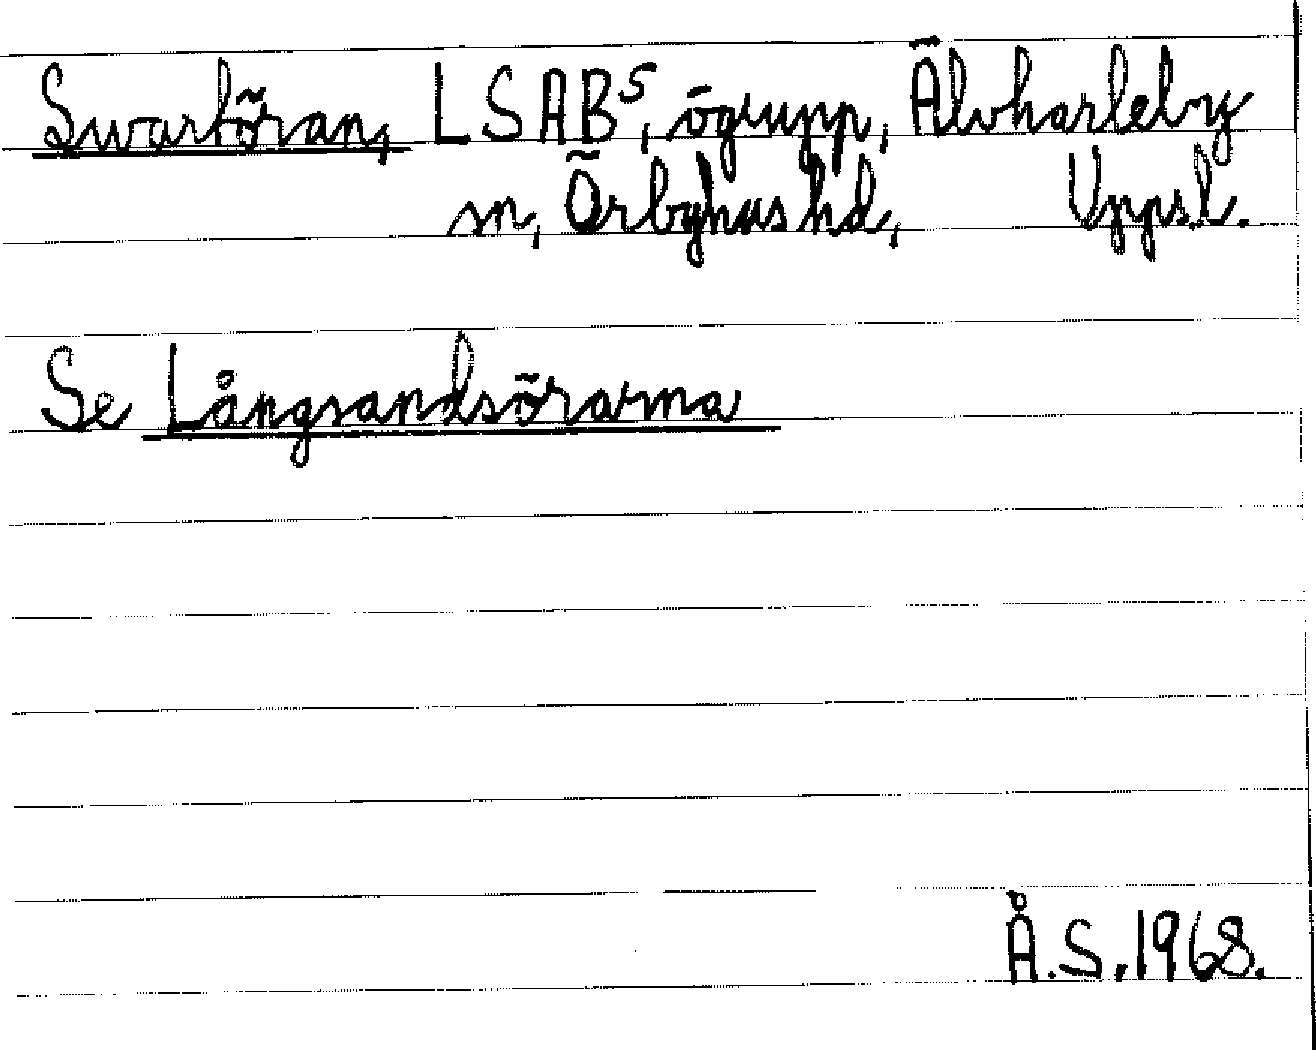 Swartöran, LSABˢ, ögrupp, Älvkarleby
sn, Örbyhus hd, Uppsl.
Se Långsandsörarna
Å.S. 1968.